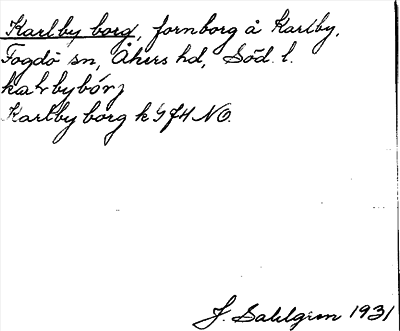 Karlby borg, fornborg å Karlby,
Fogdö sn, Åkers hd, Söd. l.
Karlby borg k 574 NO.
J. Sahlgren 1931